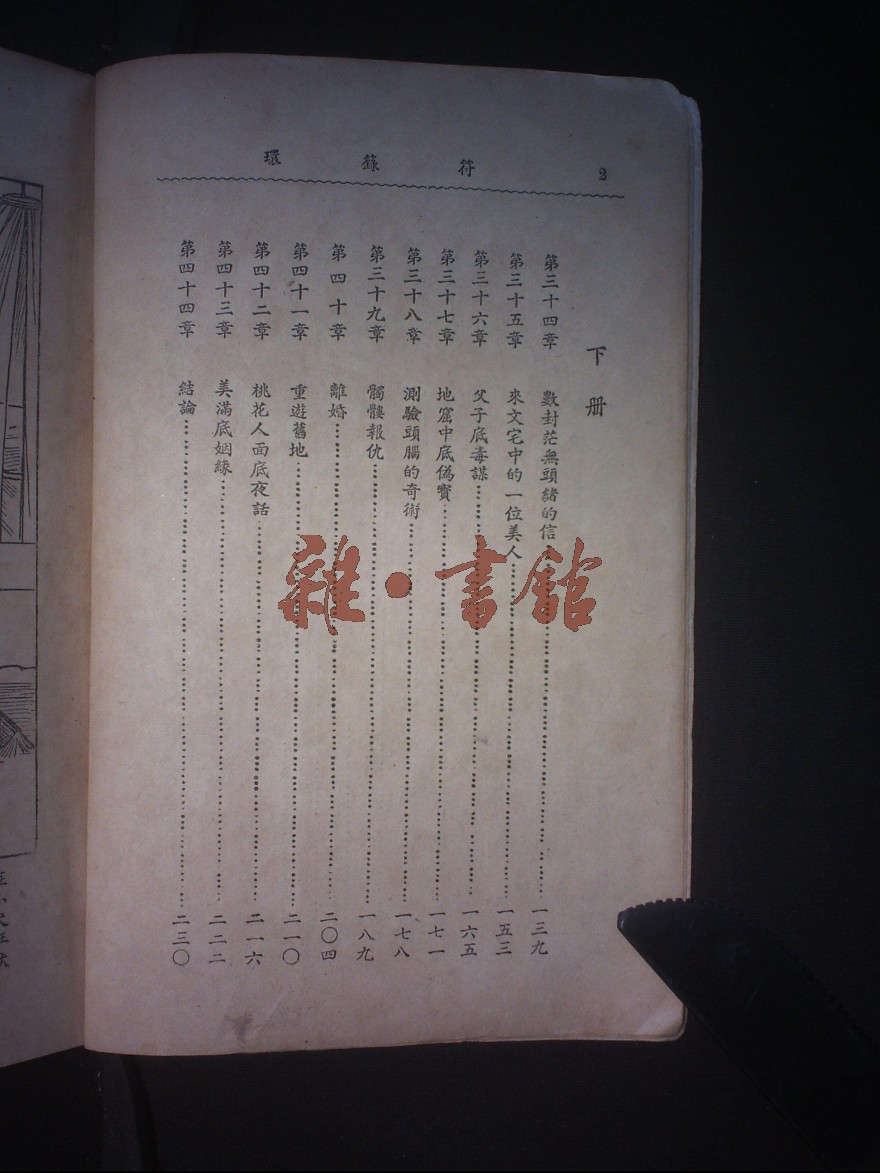 符籙環
2
下册
第三十四章 數封茫無頭緒的信 一三九
第三十五章 來文宅中的一位美人 一五三
第三十六章 父子底毒謀 一六五
第三十七章 地窟中底偽寶 一七一
第三十八章 測驗頭腦的奇術 一七八
第三十九章 髑髏報仇 一八九
第四十章 離婚 二〇四
第四十一章 重遊舊地 二一〇
第四十二章 桃花人面底夜話 二一六
第四十三章 美滿底姻緣 二二二
第四十四章 結論 二三〇
雜·書館